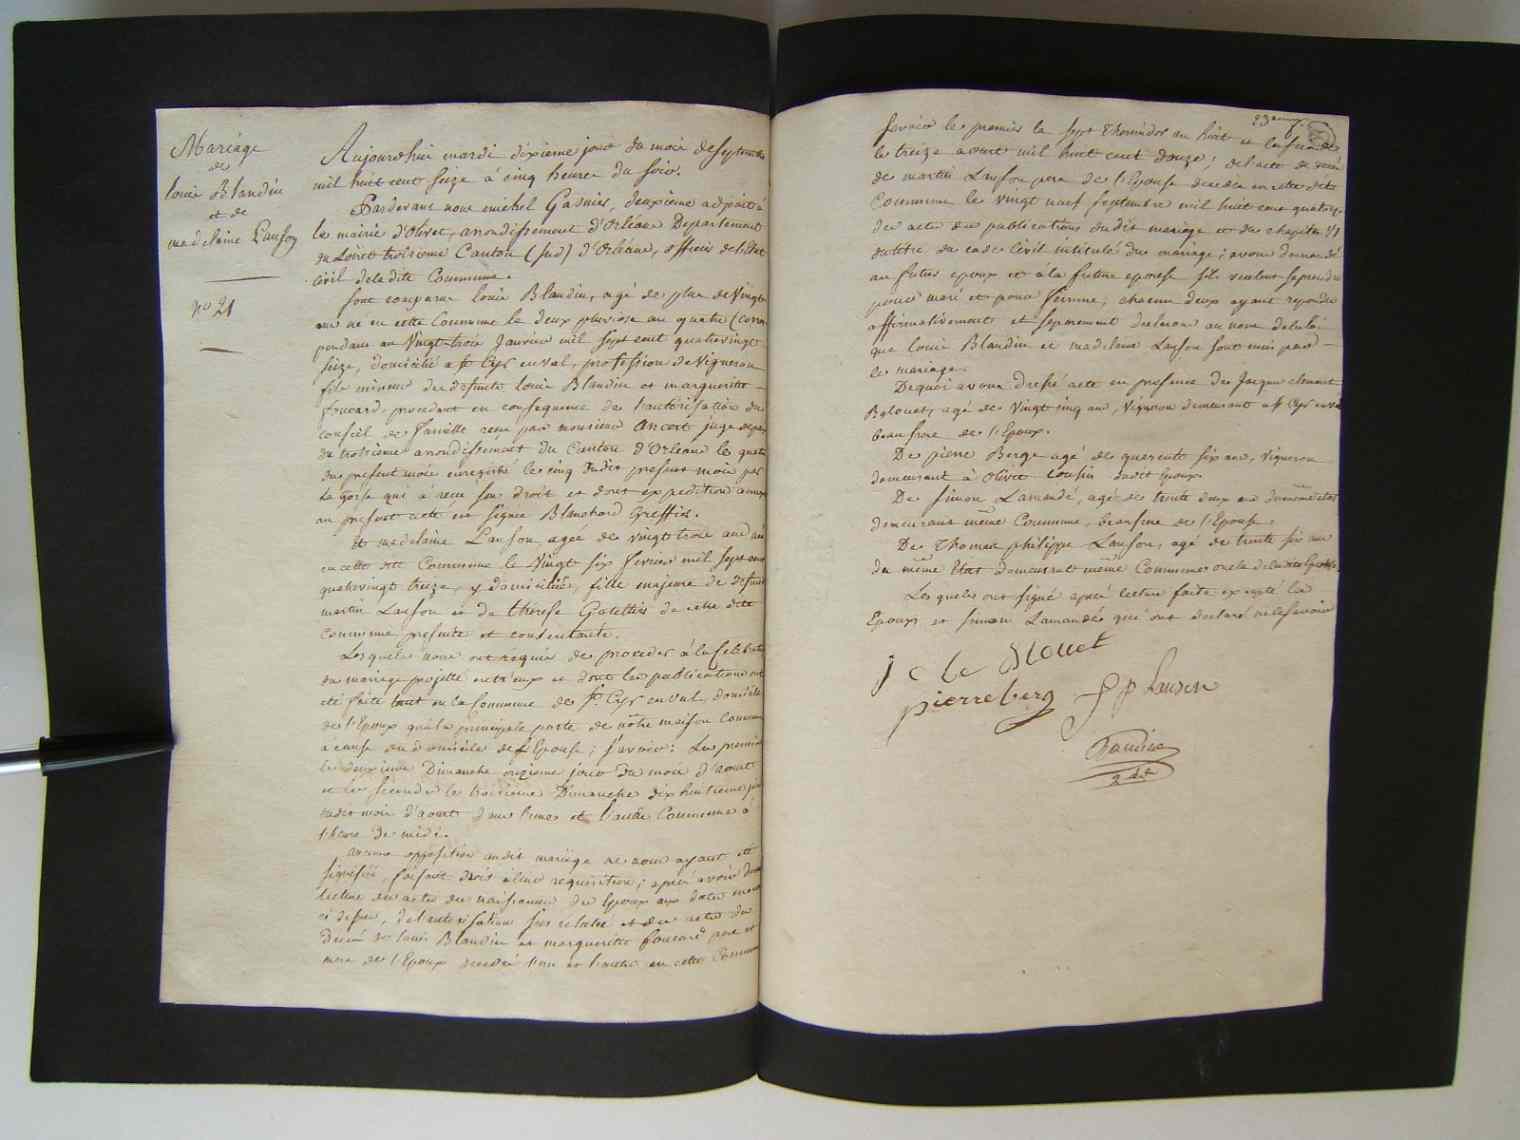 Mariage
de
louis Blandin
et de
madelaine Lanson
no 21
Aujourdhui mardi dixieme jour du mois de Septembre
mil huit cent Seize à cinq heures du soir.
Pardevant nous michel Gasnier, deuxieme adjoint à
la mairie d'Olivet, arrondissement d'Orléans Departement
du Loiret troisieme Canton (sud) d'Orléans, officier de l'Etat
civil de ladite Commune.
Sont comparus louis Blandin, agé de plus de Vingt
ans né en cette Commune le deux pluviose an quatre (corres
pendant au Vingt-trois Janvier mil sept cent quatrevingt
Seize, domicilié a St Cyr en val, profession de Vigneron
fils mineur des defunts louis Blandin et marguerite
foucard, procedant en consequence de l'autorisation du
conseil de famille reçu par monsieur Ancert juge de paix
du troisieme arrondissement du Canton d'Orléans le quatre
du present mois enregistré le cinq dudit present mois par
La gorse qui à recu son droit et dont expedition annexée
au present acte est signée Blanchard Greffier.
Et madelaine Lanson agée de vingt trois ans née
en cette dite Commune le Vingt six fevrier mil sept cent
quatrevingt treize, y domiciliée, fille majeure de defunt
martin Lanson et de therese Gatellier de cette dite
Commune presente et consentante.
Lesquels nous ont requis de proceder à la Celebration
du mariage projetté entr'eux et dont les publications ont
été faite tant en la Commune de St Cyr en val, domicile
de l'Epoux qu'à la principale porte de notre maison Commune
à cause du domicile de l'Epouse; Savoir: La premiere
le deuxieme Dimanche onzieme jour du mois d'aoust
et la seconde le troisieme Dimanche dix huitieme jour
dudit mois d'aoust dans l'une et l'autre Commune à
l'heure de midi.
aucune opposition audit mariage ne nous ayant été
signifiée, faisant droit à leur requisition; après avoir donné
lecture des actes de naissances des Epoux aux dates
ci dessus, de l'autorisation sus relatée et des actes de
decès de louis Blandin et marguerite foucard pere et
mere de l'Epoux decedés l'un et l'autre en cette Commune
Savoir le premier le sept Thermidor an huit et la seconde
le treize aoust mil huit cent douze; de l'acte de decès
de martin Lanson pere de l'Epouse decedé en cette dite
Commune le vingt neuf Septembre mil huit cent quatre,
des actes des publications dudit mariage et du chapitre VI
du titre du code Civil intitulé du mariage; avons demandé
au futur epoux et à la future epouse s'ils veulent se prendre
pour mari et pour femme, chacun deux ayant repondu
affirmativement et separement declarons au nom de la loi
que louis Blandin et madelaine Lanson sont unis par
le mariage.
De quoi avons dressé acte en presence de Jacques clement
Belouet, agé de Vingt cinq ans, Vigneron demeurant a St Cyr en val
beau frere de l'Epoux.
De pierre Berge agé de quarente six ans, Vigneron
demeurant à Olivet cousin dudit Epoux.
De Simon Lamandé, agé de trente deux ans du même etat
demeurant même Commune, beaufrere de l'Epouse.
De Thomas philippe Lanson, agé de trente six ans
du même Etat demeurant même Commune oncle de ladite Epouse.
Lesquels ont signé après lecture faite excepté les
Epoux et Simon Lamandé qui ont declaré ne le savoir
pierre berg
Lanson
Gasnier